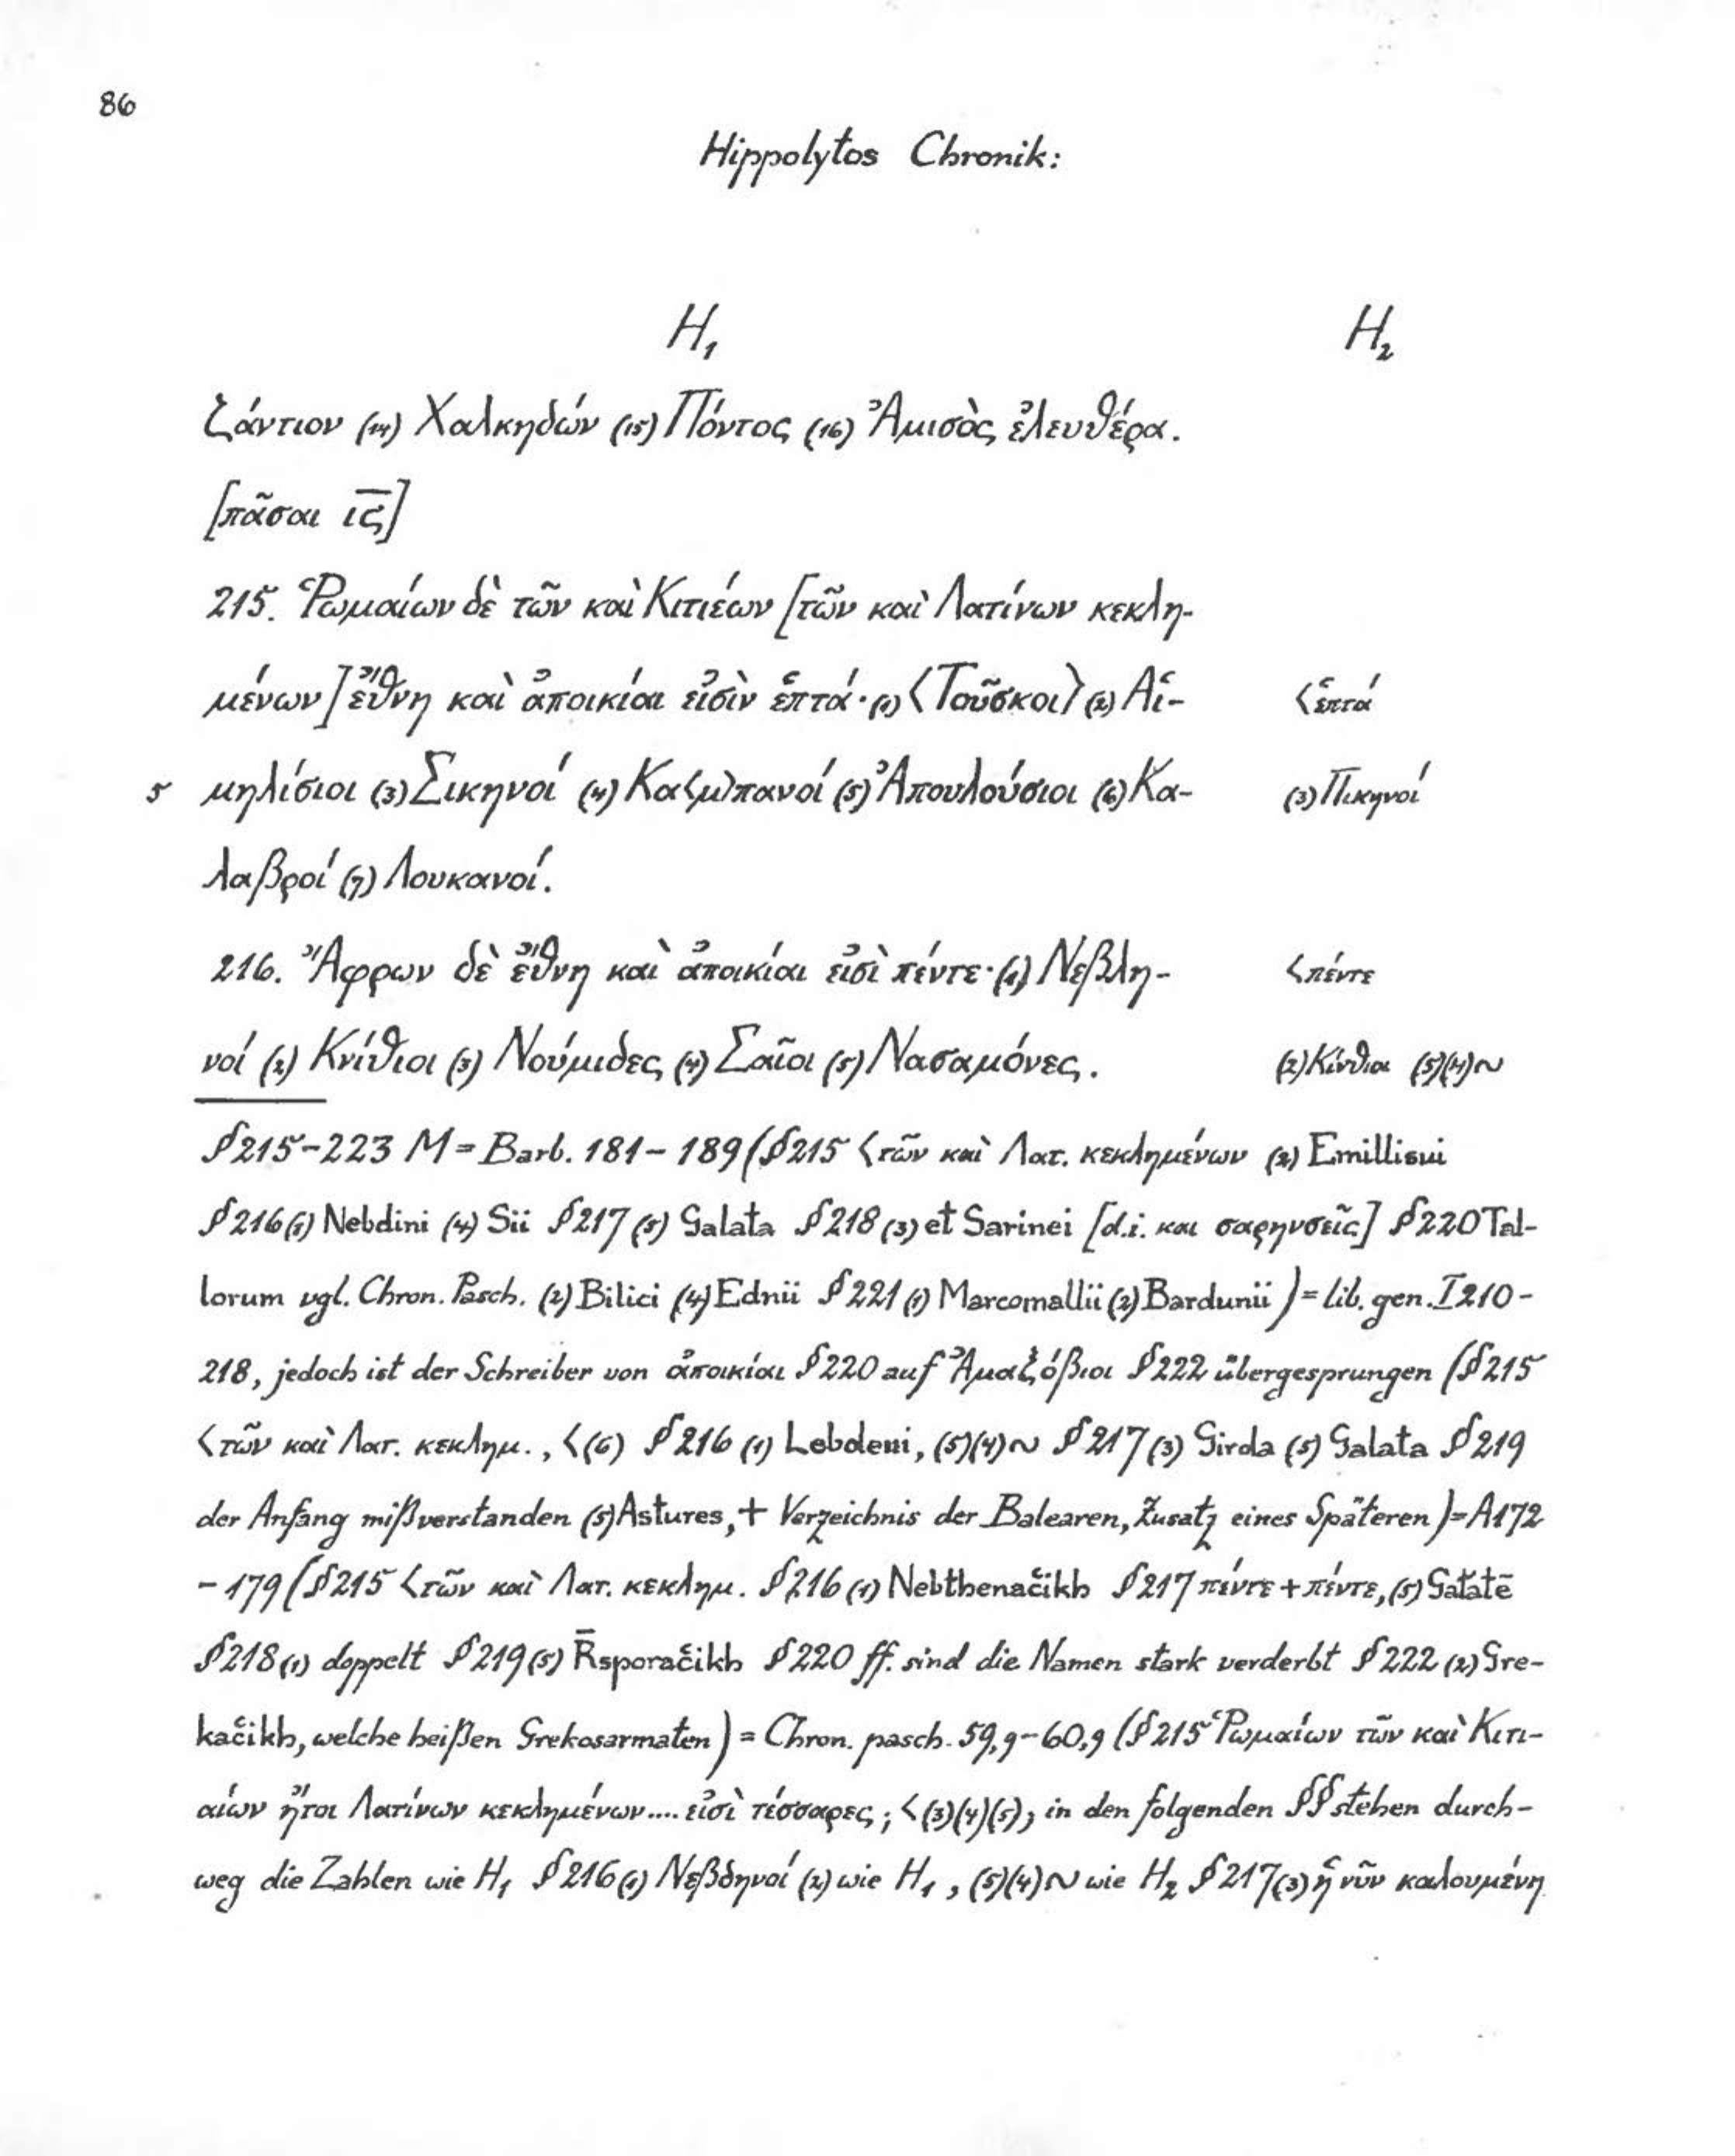 86
Hippolytos Chronik:
H₁ H₂
ζάντιον (14) Χαλκηδών (15) Πόντος (16) Ἀμισὸς ἐλευθέρα.
[πᾶσαι ις̅]
215. Ῥωμαίων δὲ τῶν καὶ Κιτιέων [τῶν καὶ Λατίνων κεκλη-
μένων] ἔθνη καὶ ἀποικίαι εἰσὶν ἑπτά· (1) ⟨Τοῦσκοι⟩ (2) Αἱ- <ἑπτά
5 μηλίσιοι (3) Σικηνοί (4) Κα⟨μ⟩πανοί (5) Ἀπουλούσιοι (6) Κα- (3) Πικηνοί
λαβροί (7) Λουκανοί.
216. Ἄφρων δὲ ἔθνη καὶ ἀποικίαι εἰσὶ πέντε· (1) Νεβλη- <πέντε
νοί (2) Κνίθιοι (3) Νούμιδες (4) Σαῖοι (5) Νασαμόνες. (2) Κίνθιοι (5)(4)~
§215-223 M = Barb. 181-189 (§215 <τῶν καὶ Λατ. κεκλημένων (2) Emillisui
§216 (1) Nebdini (4) Sii §217 (5) Galata §218 (3) et Sarinei [d.i. και σαρηνσεῖς] §220 Tal-
lorum vgl. Chron. Pasch. (2) Bilici (4) Ednii §221 (1) Marcomallii (2) Bardunii) = lib. gen. I 210-
218, jedoch ist der Schreiber von ἀποικίαι §220 auf Ἁμαξόβιοι §222 übergesprungen (§215
<τῶν καὶ Λατ. κεκλημ., <(6) §216 (1) Lebdeni, (5)(4)~ §217 (3) Girda (5) Galata §219
der Anfang mißverstanden (5) Astures, + Verzeichnis der Balearen, Zusatz eines Späteren) = A 172
-179 (§215 <τῶν καὶ Λατ. κεκλημ. §216 (1) Nebthenačikh §217 πέντε + πέντε, (5) Gałatē
§218 (1) doppelt §219 (5) R̅sporačikh §220 ff. sind die Namen stark verderbt §222 (2) Gre-
kačikh, welche heißen Grekosarmaten) = Chron. pasch. 59,9-60,9 (§215 Ῥωμαίων τῶν καὶ Κιτι-
αίων ἤτοι Λατίνων κεκλημένων.... εἰσὶ τέσσαρες; <(3)(4)(5); in den folgenden §§ stehen durch-
weg die Zahlen wie H₁ §216 (1) Νεβδηνοί (2) wie H₁, (5)(4)~ wie H₂ §217 (3) ἡ νῦν καλουμένη